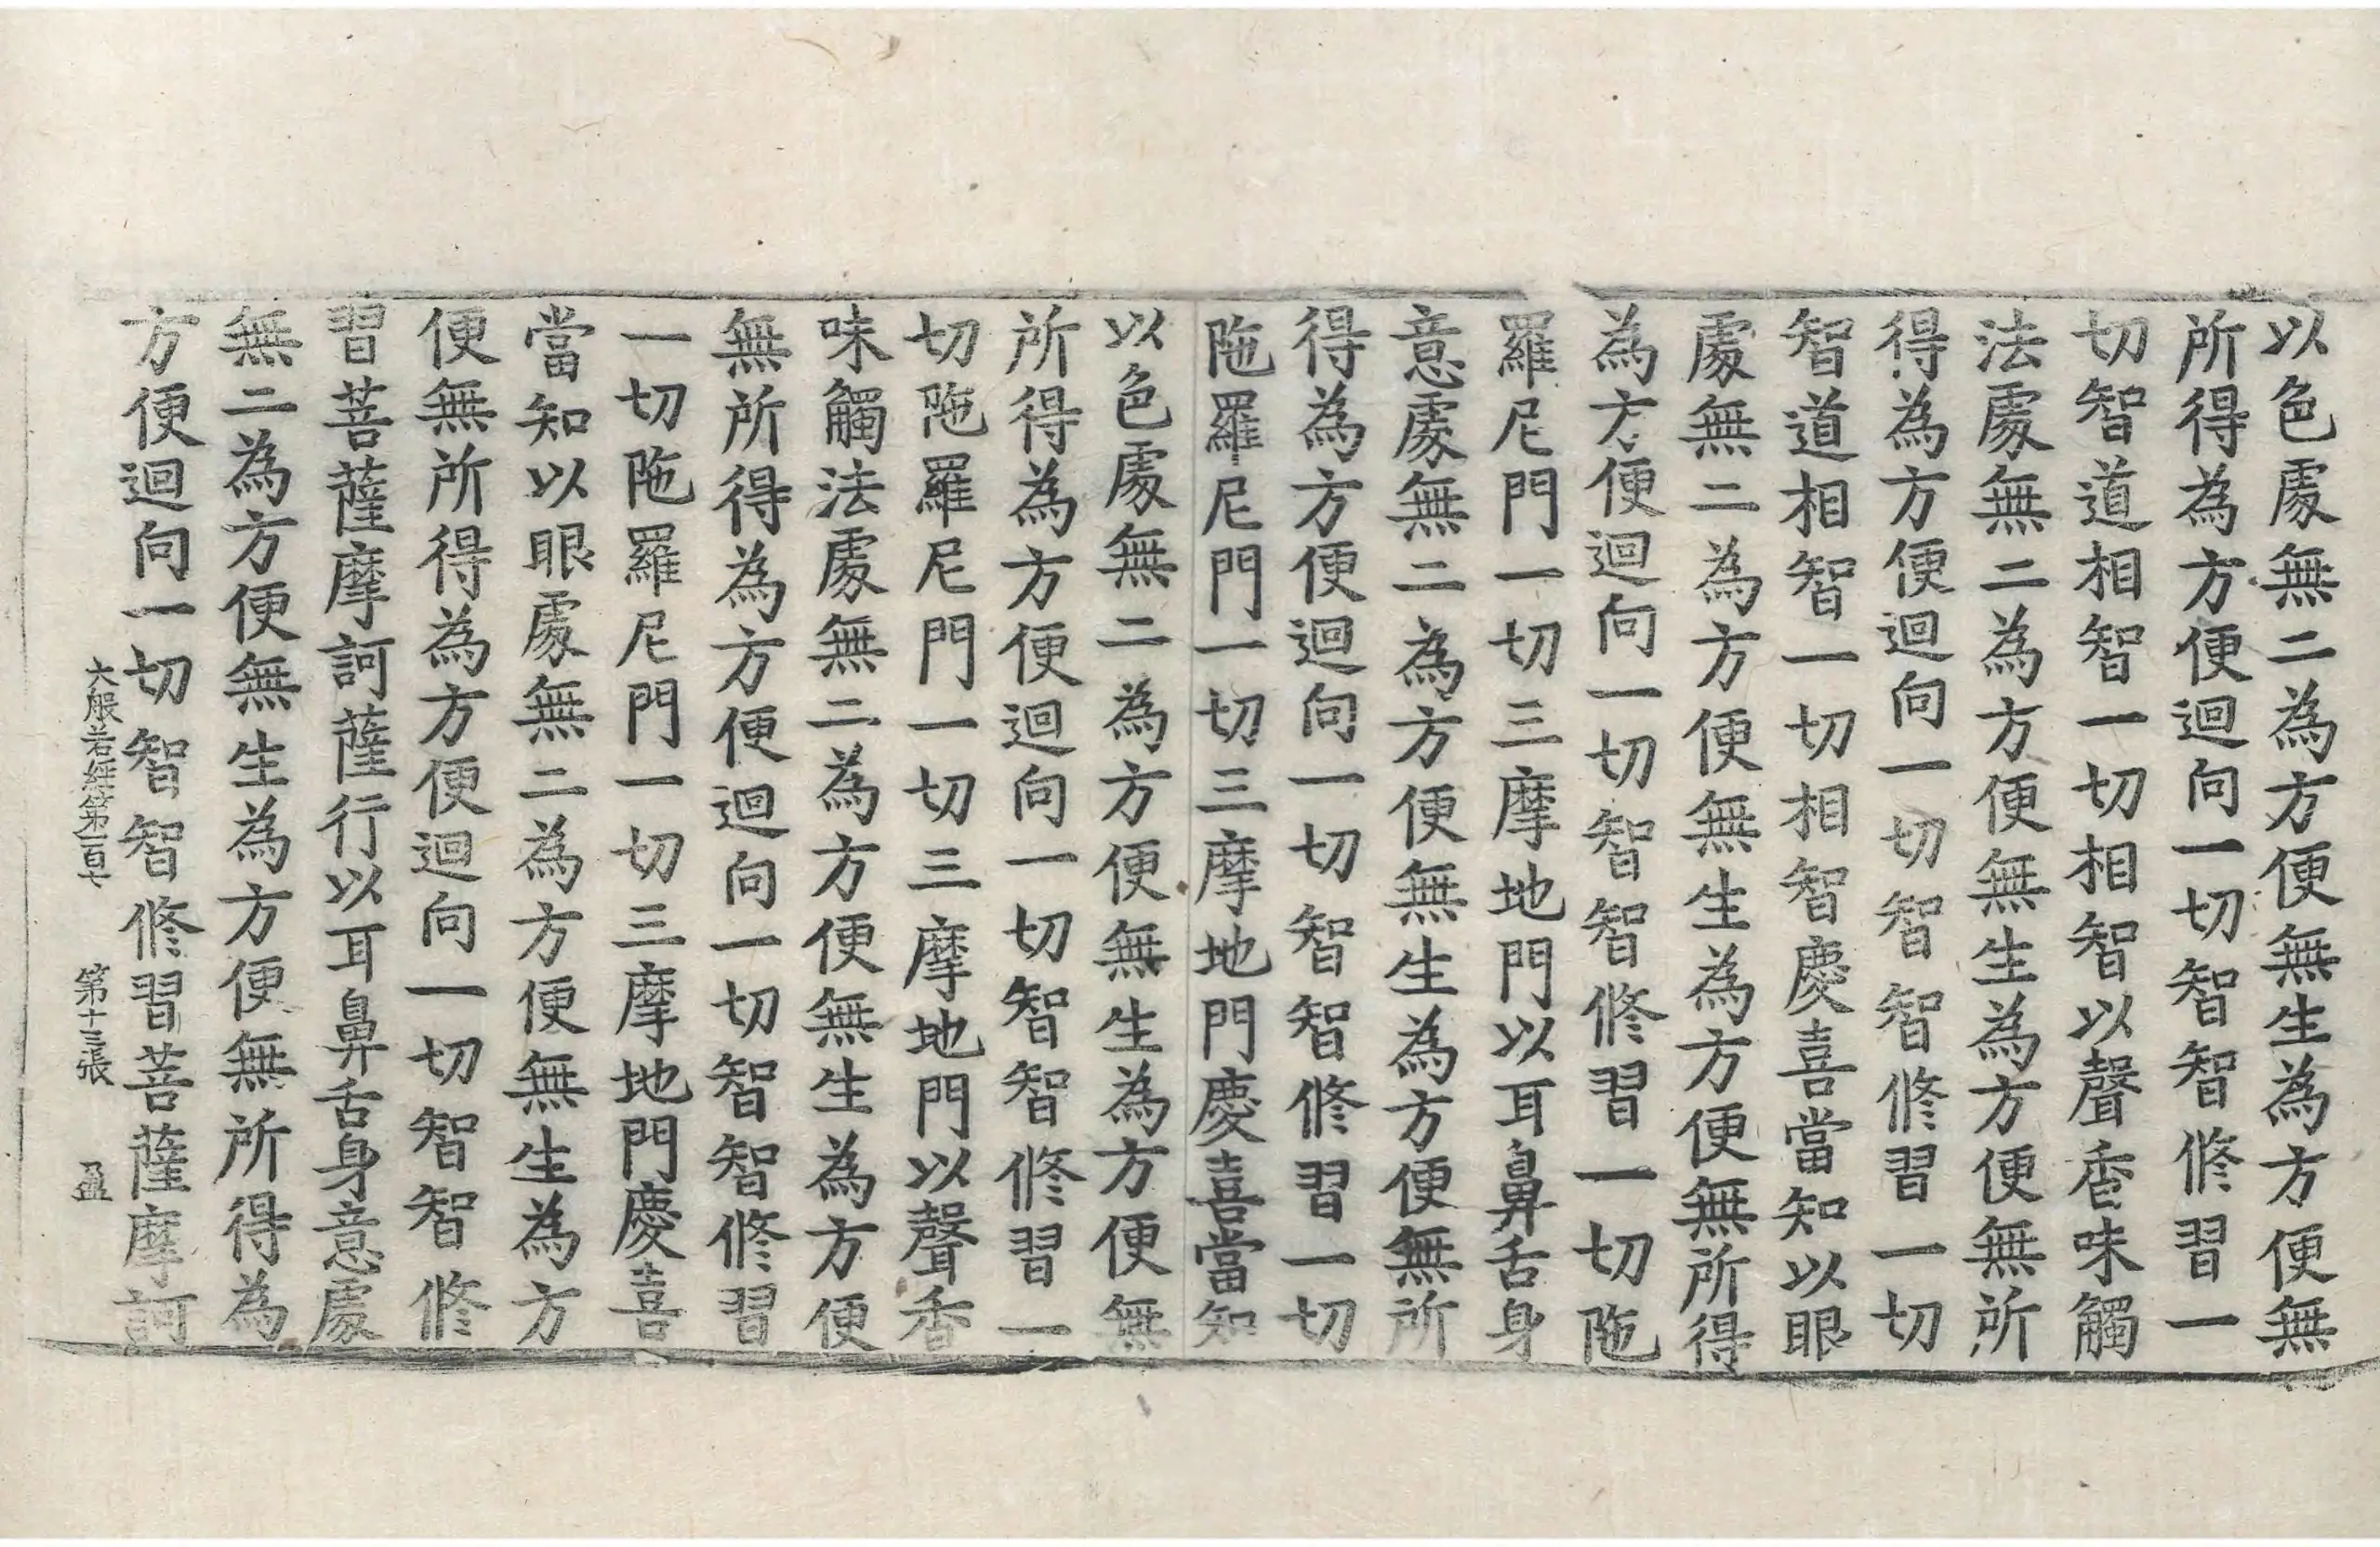 以色處無二為方便無生為方便無
所得為方便迴向一切智智修習一
切智道相智一切相智以聲香味觸
法處無二為方便無生為方便無所
得為方便迴向一切智智修習一切
智道相智一切相智慶喜當知以眼
處無二為方便無生為方便無所得
為方便迴向一切智智修習一切陁
羅尼門一切三摩地門以耳鼻舌身
意處無二為方便無生為方便無所
得為方便迴向一切智智修習一切
陁羅尼門一切三摩地門慶喜當知
以色處無二為方便無生為方便無
所得為方便迴向一切智智修習一
切陁羅尼門一切三摩地門以聲香
味觸法處無二為方便無生為方便
無所得為方便迴向一切智智修習
一切陁羅尼門一切三摩地門慶喜
當知以眼處無二為方便無生為方
便無所得為方便迴向一切智智修
習菩薩摩訶薩行以耳鼻舌身意處
無二為方便無生為方便無所得為
方便迴向一切智智修習菩薩摩訶
大般若經第一百七 第十三張 盈